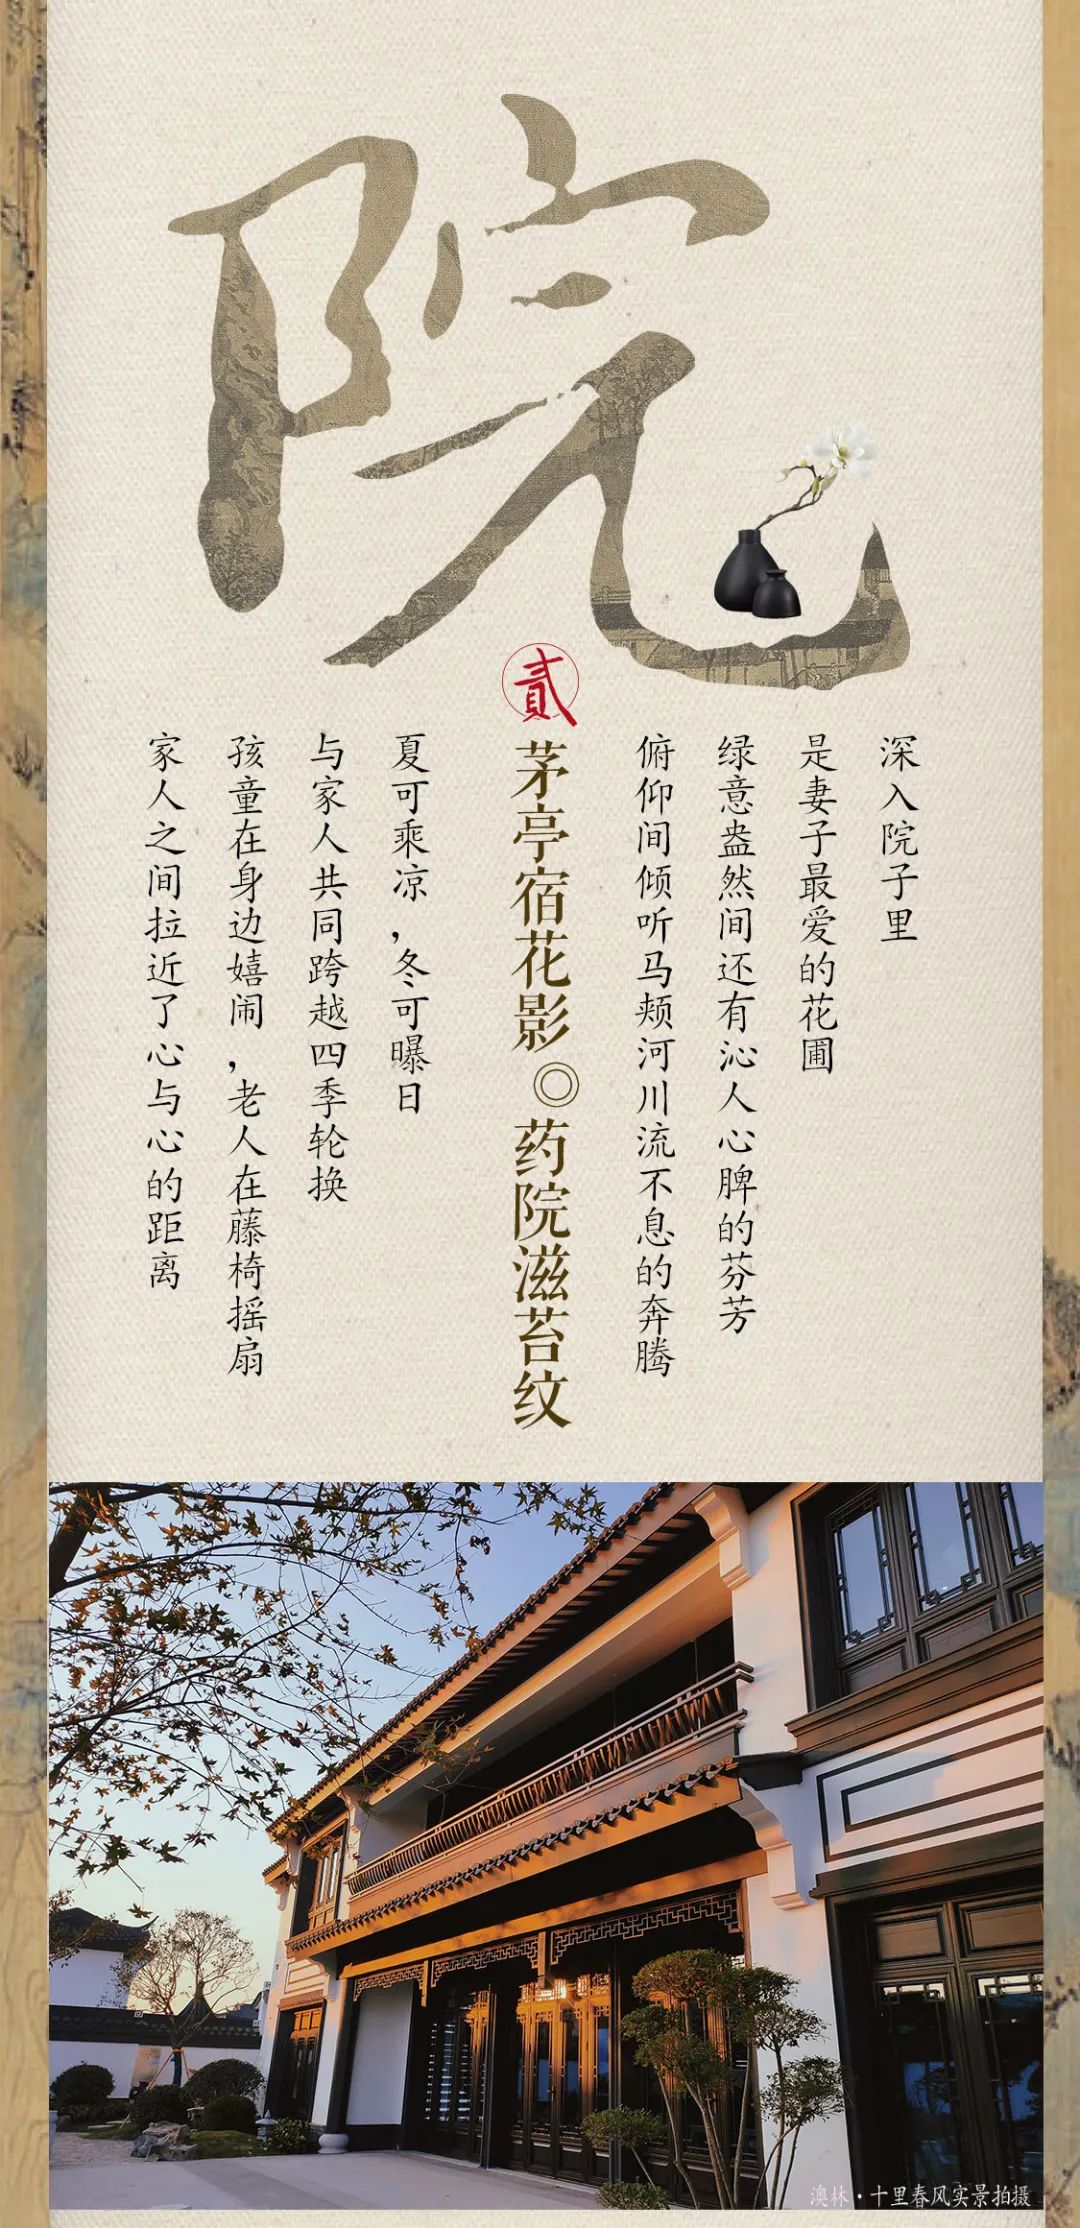 院
贰
深入院子里
是妻子最爱的花圃
绿意盎然间还有沁人心脾的芬芳
俯仰间倾听马颊河川流不息的奔腾
茅亭宿花影◎药院滋苔纹
夏可乘凉，冬可曝日
与家人共同跨越四季轮换
孩童在身边嬉闹，老人在藤椅摇扇
家人之间拉近了心与心的距离
澳林·十里春风实景拍摄